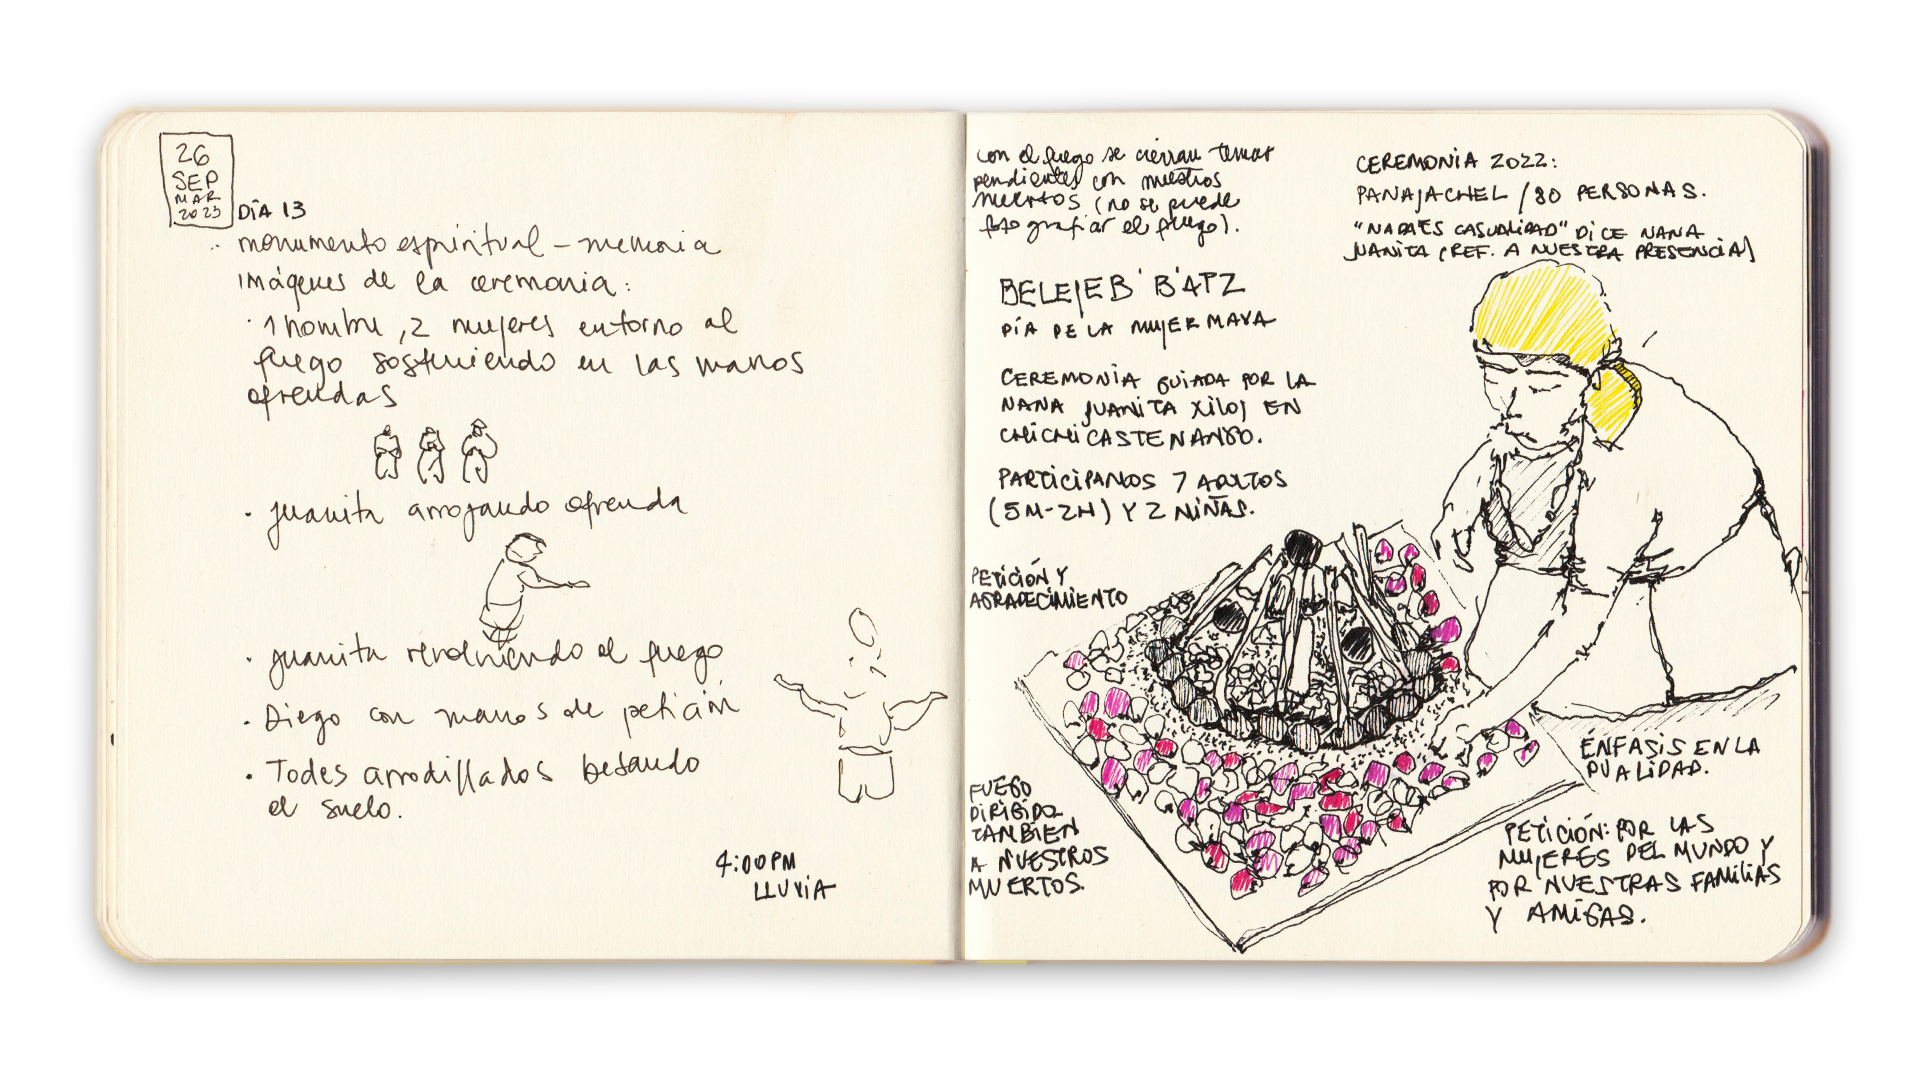 26
SEP
MAR
2023
DÍA 13
monumento espiritual – memoria
imágenes de la ceremonia:
· 1 hombre, 2 mujeres entorno al
fuego sosteniendo en las manos
ofrendas
· Juanita arrojando ofrenda
· Juanita revolviendo el fuego
· Diego con manos de petición
· Todes arrodillados besando
el suelo.
4:00PM
LLUVIA
con el fuego se cierran temas
pendientes con nuestros
muertos (no se puede
fotografiar el fuego).
BELEJEB' B'ATZ
DÍA DE LA MUJER MAYA
CEREMONIA GUIADA POR LA
NANA JUANITA XILOJ EN
CHICHICASTENANGO.
PARTICIPAMOS 7 ADULTOS
(5M-2H) Y 2 NIÑAS.
PETICIÓN Y
AGRADECIMIENTO
FUEGO
DIRIGIDO
TAMBIEN
A NUESTROS
MUERTOS.
CEREMONIA 2022:
PANAJACHEL / 80 PERSONAS.
"NADA ES CASUALIDAD" DICE NANA
JUANITA (REF. A NUESTRA PRESENCIA)
ÉNFASIS EN LA
DUALIDAD.
PETICIÓN: POR LAS
MUJERES DEL MUNDO Y
POR NUESTRAS FAMILIAS
Y AMIGAS.